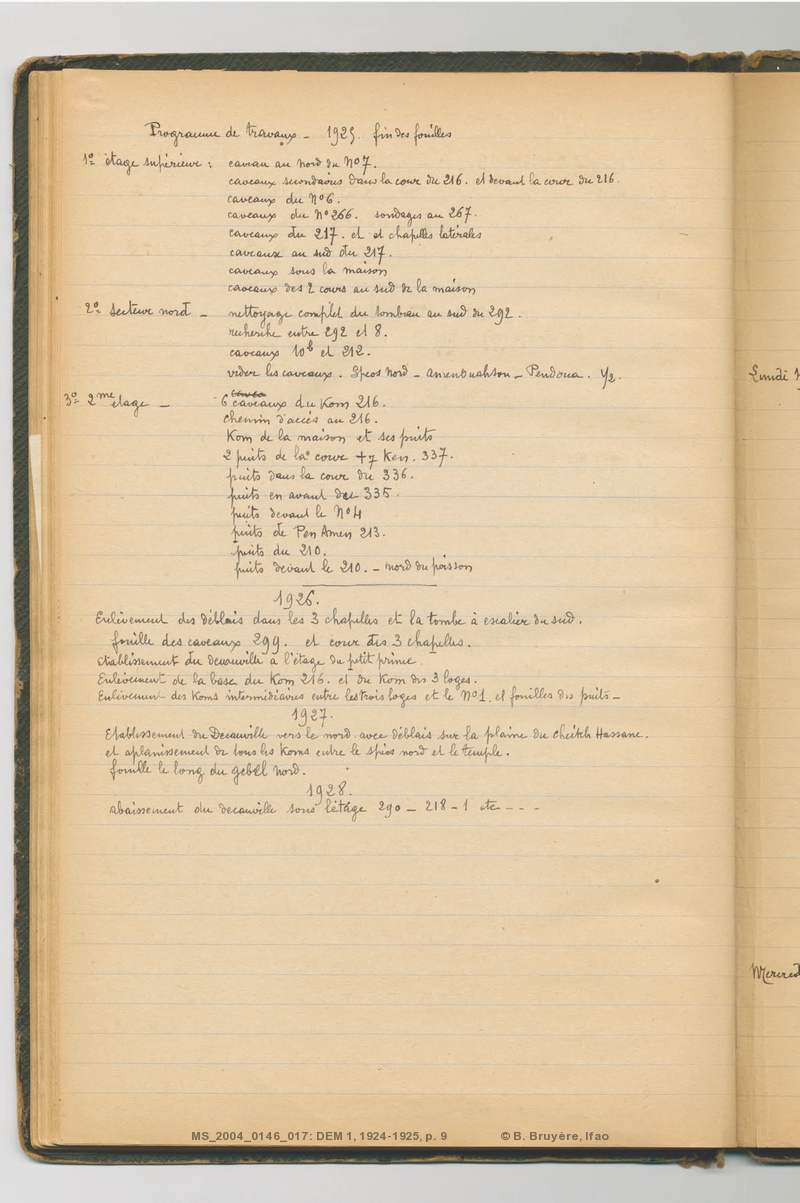 Programme de travaux - 1925. fin des fouilles
1º étage supérieur : caveau au nord du Nº 7.
caveaux secondaires dans la cour du 216. et devant la cour du 216.
caveaux du Nº 6.
caveaux du Nº 266. sondages au 267.
caveaux du 217. et et chapelles latérales
caveaux au sud du 217.
caveaux sous la maison
caveaux des 2 cours au sud de la maison
2º Secteur nord - nettoyage complet du tombeau au sud du 292.
recherche entre 292 et 8.
caveaux 10b et 212.
vider les caveaux. Speos Nord - Amennakhton - Pendoua. 1/2.
3º 2me étage - 6 caveaux du Kom 216.
chemin d'accès au 216.
Kom de la maison et ses puits
2 puits de la cour Ken. 337.
puits dans la cour du 336.
puits en avant du 335.
puits devant le Nº 4
puits de Pen Amen 213.
puits du 210.
puits devant le 210. - nord du poisson
1926.
Enlèvement des déblais dans les 3 chapelles et la tombe à escalier du sud.
fouille des caveaux 299. et cour des 3 chapelles.
etablissement du decauville à l'étage du petit prince.
Enlèvement de la base du Kom 216. et du Kom des 3 loges.
Enlèvement des Koms intermédiaires entre les trois loges et le Nº 1. et fouilles des puits -
1927.
Etablissement du Decauville vers le nord avec déblais sur la plaine du Cheikh Hassane.
et aplanissement de tous les Koms entre le spéos nord et le temple.
fouille le long du gebel nord.
1928.
abaissement du decauville sous l'étage 290 - 218 - 1 etc - - -
Lundi 1
Mercred
MS_2004_0146_017: DEM 1, 1924-1925, p. 9 © B. Bruyère, Ifao